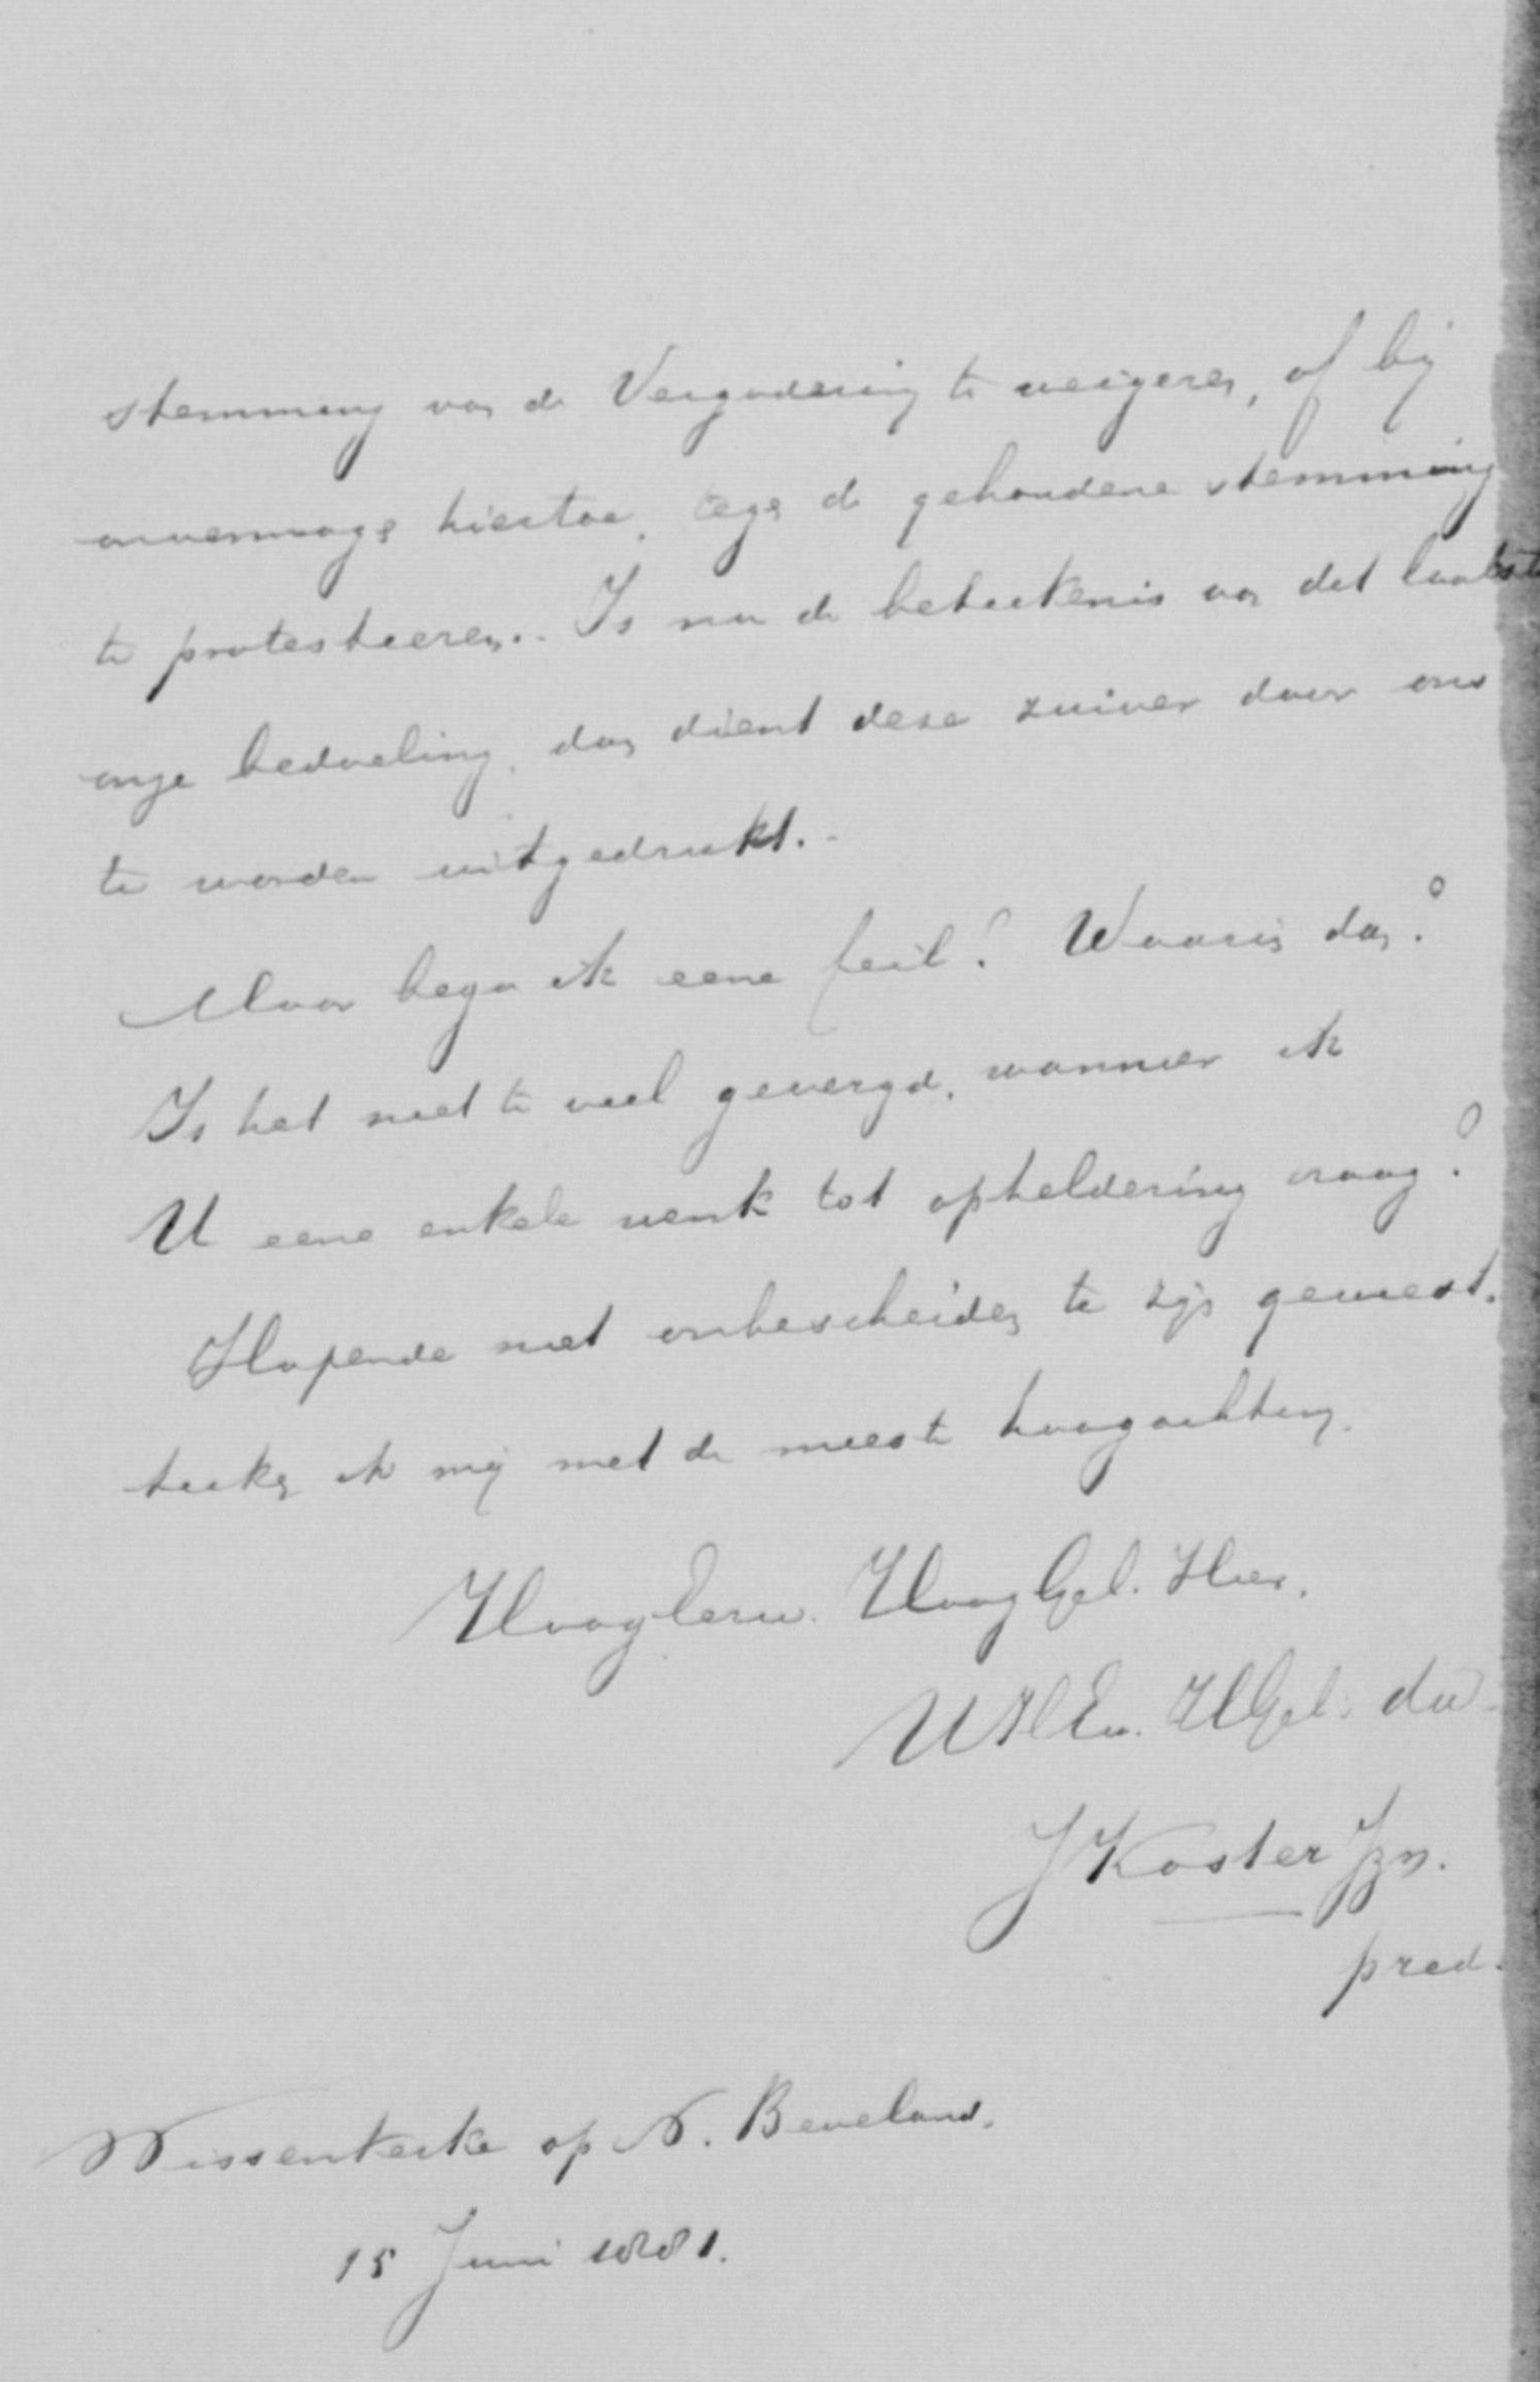 stemming van de Vergadering te weigeren, of bij
onvermogen hiertoe, tegen de gehoudene stemming
te protesteeren. Is nu de beteekenis van dit laatste
onze bedoeling, dan dient deze zuiver door ons
te worden uitgedrukt.-
Maar bega ik eene feil? Waarin dan?
Is het niet te veel gevergd, wanneer ik
U eene enkele wenk tot opheldering vraag?
Hopende niet onbescheiden te zijn geweest,
teeken ik mij met de meeste hoogachting.
HoogEerw. HoogGel. Heer.
UHEw. HGel. dw.
J Koster Jzn.
pred.
Wissenkerke op N. Beveland.
15 Juni 1881.